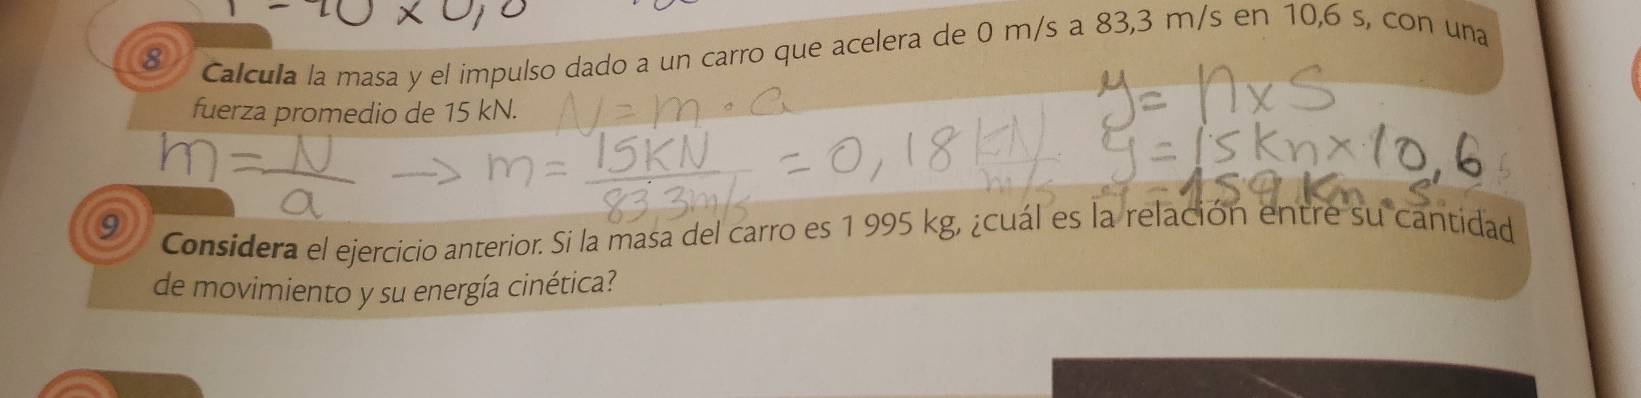 8 Calcula la masa y el impulso dado a un carro que acelera de 0 m/s a 83,3 m/s en 10,6 s, con una
fuerza promedio de 15 kN.
N = m · a
m = N / a → m = 15KN / 83,3m/s = 0,18 KN / m/s
y = n x s
y = 15kn x 10,6 s
y = 159 Kn . s
9 Considera el ejercicio anterior. Si la masa del carro es 1 995 kg, ¿cuál es la relación entre su cantidad
de movimiento y su energía cinética?